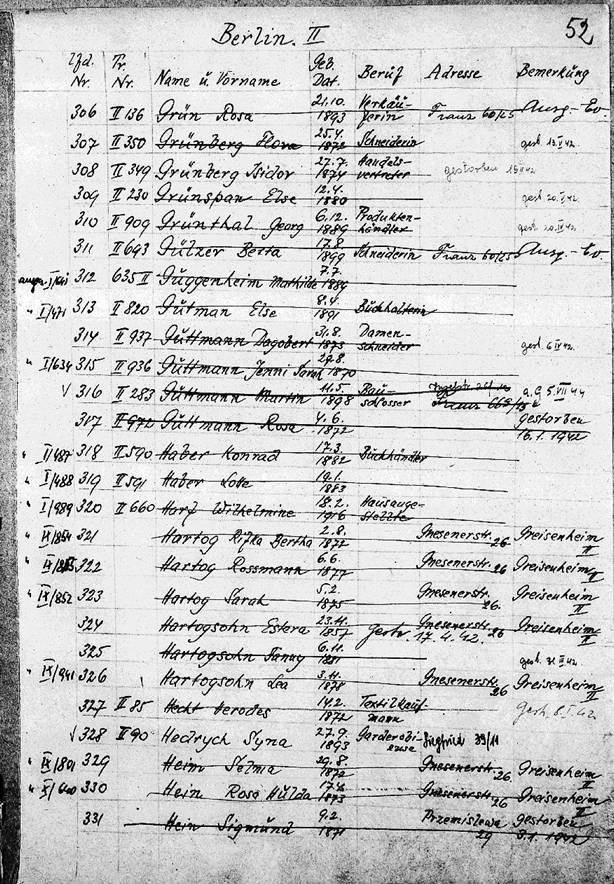 52
Berlin. II
Lfd. Nr. Tr. Nr. Name u. Vorname Geb. Dat. Beruf Adresse Bemerkung
306 II 136 Grün Rosa 21.10. 1893 Verkäuferin Franz 60/25 Ausg.-Ev.
307 II 350 Grünberg Flora 25.4. 1872 Schneiderin gest.
308 II 349 Grünberg Isidor 27.7. 1874 Handelsvertreter gestorben
309 II 230 Grünspan Else 12.4. 1880 gest.
310 II 909 Grünthal Georg 6.12. 1889 Produktenhändler gest.
311 II 693 Gülzer Berta 17.8. 1899 Schneiderin Franz 60/25 Ausg.-Ev.
312 635 II Guggenheim Mathilde 7.7. 1889
" I/471 313 II 820 Gutman Else 8.4. 1891 Buchhalterin
314 II 937 Guttmann Dagobert 31.8. 1873 Damenschneider gest.
" I/634 315 II 936 Guttmann Jenni Sarah 29.8. 1870
√ 316 II 283 Guttmann Martin 11.5. 1898 Bauschlosser
317 II 972 Guttmann Rosa 4.6. 1872 gestorben 16.1.1942
" II/487 318 II 590 Haber Konrad 17.3. 1882 Buchhändler
" I/488 319 II 591 Haber Lote 19.1. 1883
" I/989 320 II 660 Harf Wilhelmine 18.2. 1916 Hausangestellte
321 Hartog Rifka Bertha 2.8. 1872 Gnesenerstr. 26 Greisenheim II
322 Hartog Rossmann 6.6. 1877 Gnesenerstr. 26 Greisenheim II
" IX/852 323 Hartog Sarah 5.2. 1875 Gnesenerstr. 26. Greisenheim II
324 Hartogsohn Estera 23.11. 1857 Gnesenerstr. 26 Greisenheim II
Gestr. 17.4.42.
325 Hartogsohn Fanny 6.11. 1881 gest.
" IX/941 326 Hartogsohn Lea 3.11. 1878 Gnesenerstr. 26 Greisenheim II
327 II 85 Hecht Herodes 14.2. 1872 Textilkaufmann gest.
√ 328 II 90 Hedrych Syna 27.9. 1893 Garderobiense Siegfried 39/11
" IX/801 329 Heim Selma 29.8. 1872 Gnesenerstr. 26. Greisenheim II
330 Hein Rosa Hulda 17.4. 1873 Gnesenerstr. 26 Greisenheim II
331 Hein Sigmund 9.2. 1871 Przemislawa 29 gestorben 3.1.1942